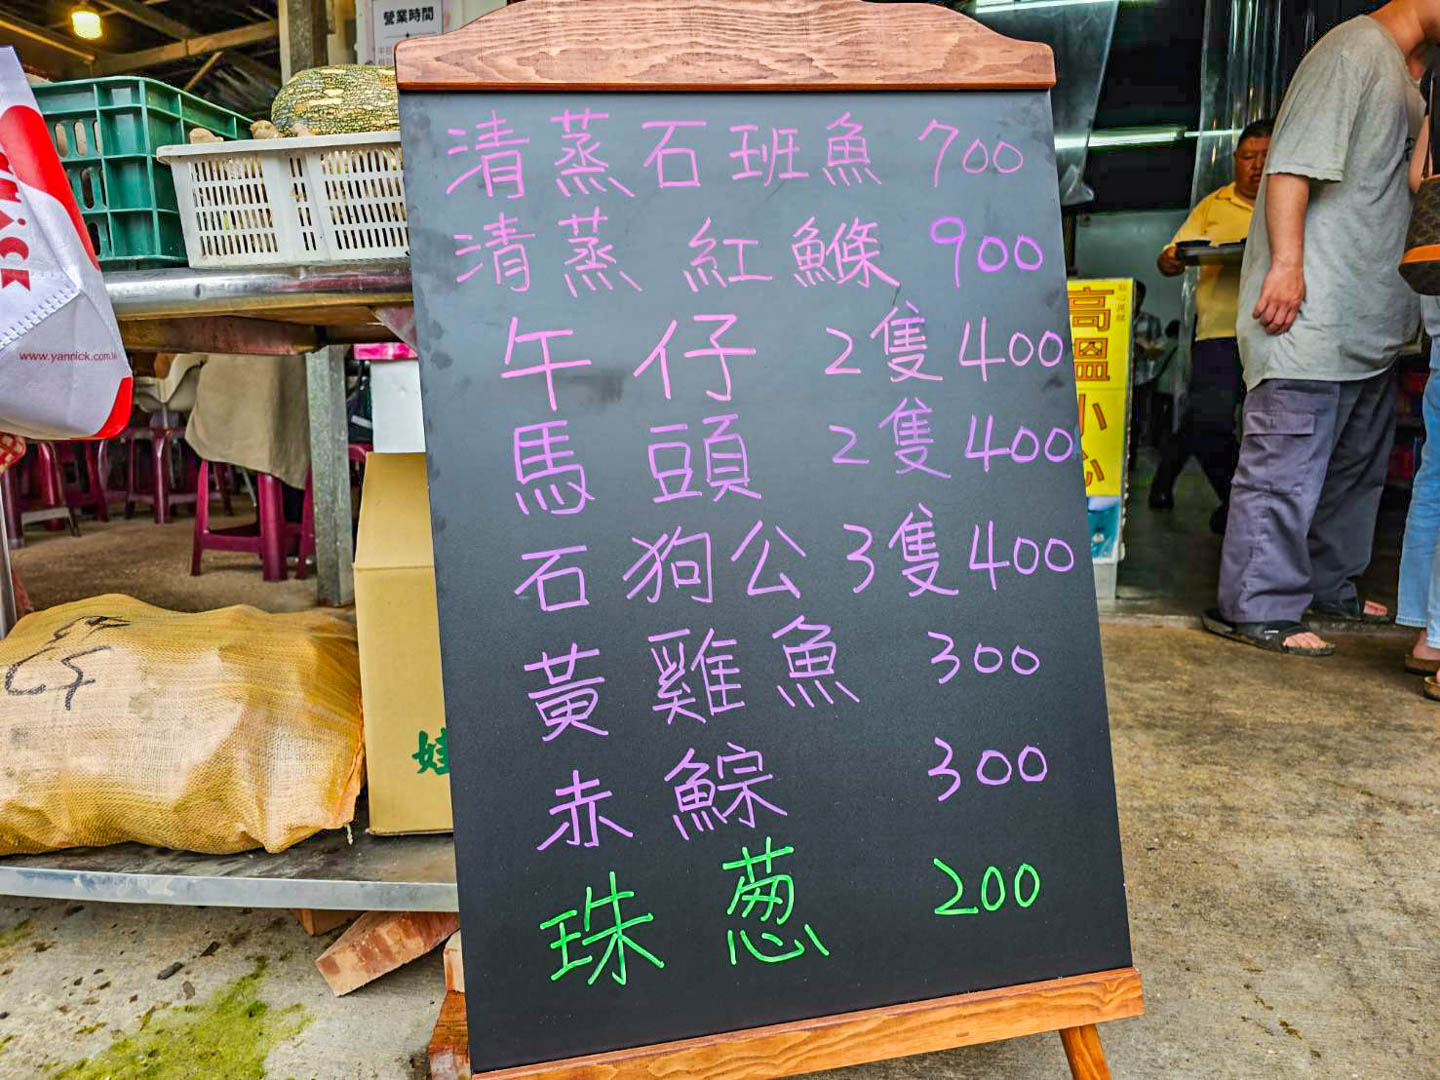 營業時間
清蒸石斑魚 700
清蒸 紅鰷 900
午仔 2隻400
馬頭 2隻400
石狗公 3隻400
黃雞魚 300
赤鯮 300
珠蔥 200
高溫小心
www.yannick.com.tw